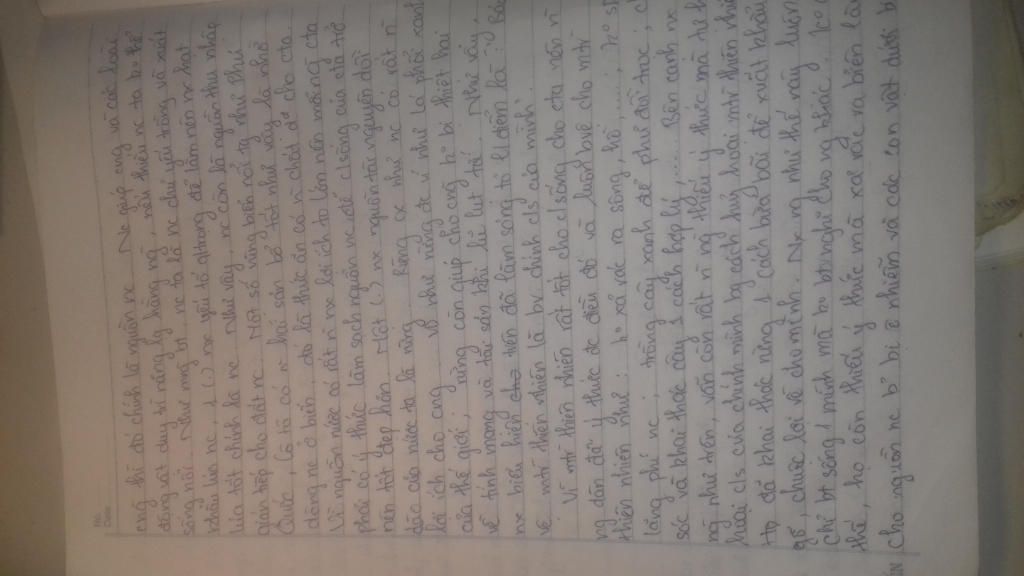 No.
Date
ng thì đó chính là nguồn nc. Nc giúp cng và các loài
động vật duy trì năng lg hằng ng, nếu thiếu nc ta ko thể
sống nổi. Như mng bt, nc ta là nc chủ yếu trồng và xuất
khẩu lúa nc, 1 () nx yếu tố qtrọng để làm nên nx hạt
lúa tốt chính là nc. Như vậy, nc còn là nguồn thu nhập
gián tiếp cho đất nc. Một số vùng biển nổi ta như Phú
Quốc, Cô Tô có n hải sản bổ, tốt như vậy là nhờ
dòng nc ở biển, đó là thức ăn có n chất dd cho cta.
Vì nguồn nước có rất n nx lợi ích to lớn nên mỗi ng cta
phải có ý thức làm sạch nguồn nc để c/sống của cta trở
nên tốt đẹp hơn. Một () nx nguồn tài nguyên dồi
dào của nước ta là rừng. Rừng nx như nc có rất n
lợi ích cho cng. Vd như rừng đc ví như là lá phổi xanh
của thế giới, rừng còn giúp cho cng ko bị thiệt hại
về tính mạng và tài sản khi lũ lụt tới. Như vậy,
nx biểu hiện trên đã làm sáng tỏ q/điểm là: "Bảo
vệ mtr thiên nhiên là bv chính c/s của mình".
Vì mtr thiên nhiên rất tốt cho c/sống cho cta nên n
ng dân đã ý thức đc điều đó và luôn bvệ cho mtr
thiên nhiên như: ko xả rác ra sông, hồ,......; ko
lãng phí nc; trồng cây xanh để phủ đồi trọc;
sóc và khai thác cây 1 cách hợp lý,.... Bên cạnh nx
ng như trên, vẫn còn rất n ng thiếu ý thức mà
hoại c/s của chính mình bg cách huỷ hoại mtr thiên
Họ đã khai thác rừng 1 cách bừa bãi để xuất khẩu
gỗ, chuộc lợi về cho mệnh. Nx ng như thế này luôn
chỉ bt sống 1 mình mà ko bt nghĩ cho ng khác. Ko
thế, họ còn thiếu ý thức mà xả rác ra biển làm
cho nguồn nc bị ô nhiễm và các con vật dưới